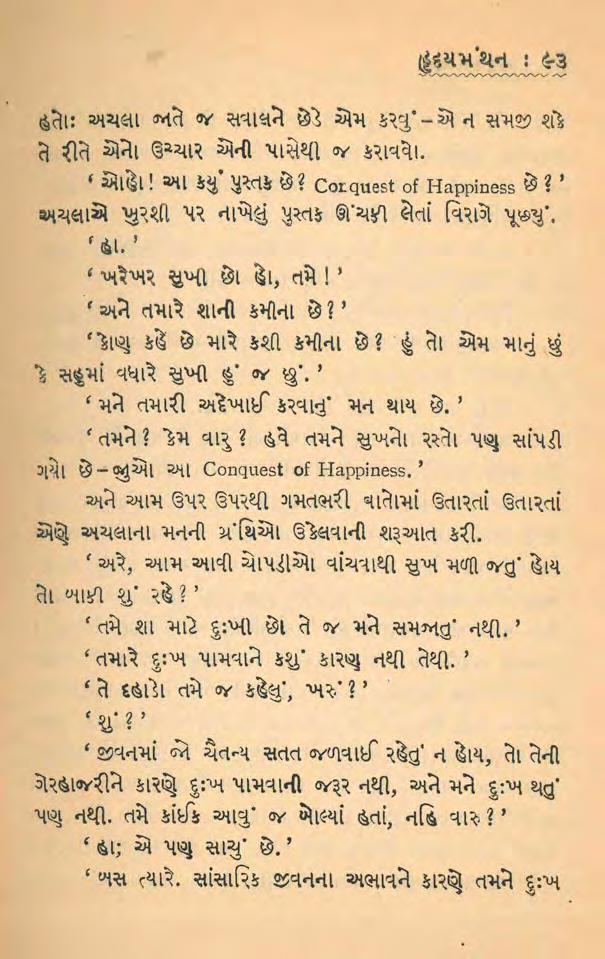 હૃદયમંથન : ૯૩
હતો: અચલા જાતે જ સવાલને છેડે એમ કરવું – એ ન સમજી શકે
તે રીતે એનો ઉચ્ચાર એની પાસેથી જ કરાવવો.
‘ ઓહો! આ કયું પુસ્તક છે? Conquest of Happiness છે ? ’
અચલાએ ખુરશી પર નાખેલું પુસ્તક ઊંચકી લેતાં વિરાગે પૂછ્યું.
‘ હા. ’
‘ ખરેખર સુખી છો હો, તમે ! ’
‘ અને તમારે શાની કમીના છે ? ’
‘ કોણ કહે છે મારે કશી કમીના છે ? હું તો એમ માનું છું
કે સહુમાં વધારે સુખી હું જ છું. ’
‘ મને તમારી અદેખાઈ કરવાનું મન થાય છે. ’
‘ તમને ? કેમ વારુ ? હવે તમને સુખનો રસ્તો પણ સાંપડી
ગયો છે – જુઓ આ Conquest of Happiness. ’
અને આમ ઉપર ઉપરથી ગમતભરી વાતોમાં ઉતારતાં ઉતારતાં
એણે અચલાના મનની ગ્રંથિઓ ઉકેલવાની શરૂઆત કરી.
‘ અરે, આમ આવી ચોપડીઓ વાંચવાથી સુખ મળી જતું હોય
તો બાકી શું રહે ? ’
‘ તમે શા માટે દુઃખી છો તે જ મને સમજાતું નથી. ’
‘ તમારે દુઃખ પામવાને કશું કારણ નથી તેથી. ’
‘ તે દહાડો તમે જ કહેલું, ખરું ? ’
‘ શું ? ’
‘ જીવનમાં જો ચૈતન્ય સતત જળવાઈ રહેતું ન હોય, તો તેની
ગેરહાજરીને કારણે દુઃખ પામવાની જરૂર નથી, અને મને દુઃખ થતું
પણ નથી. તમે કાંઈક આવું જ બોલ્યાં હતાં, નહિ વારુ ? ’
‘ હા; એ પણ સાચું છે. ’
‘ બસ ત્યારે. સાંસારિક જીવનના અભાવને કારણે તમને દુઃખ